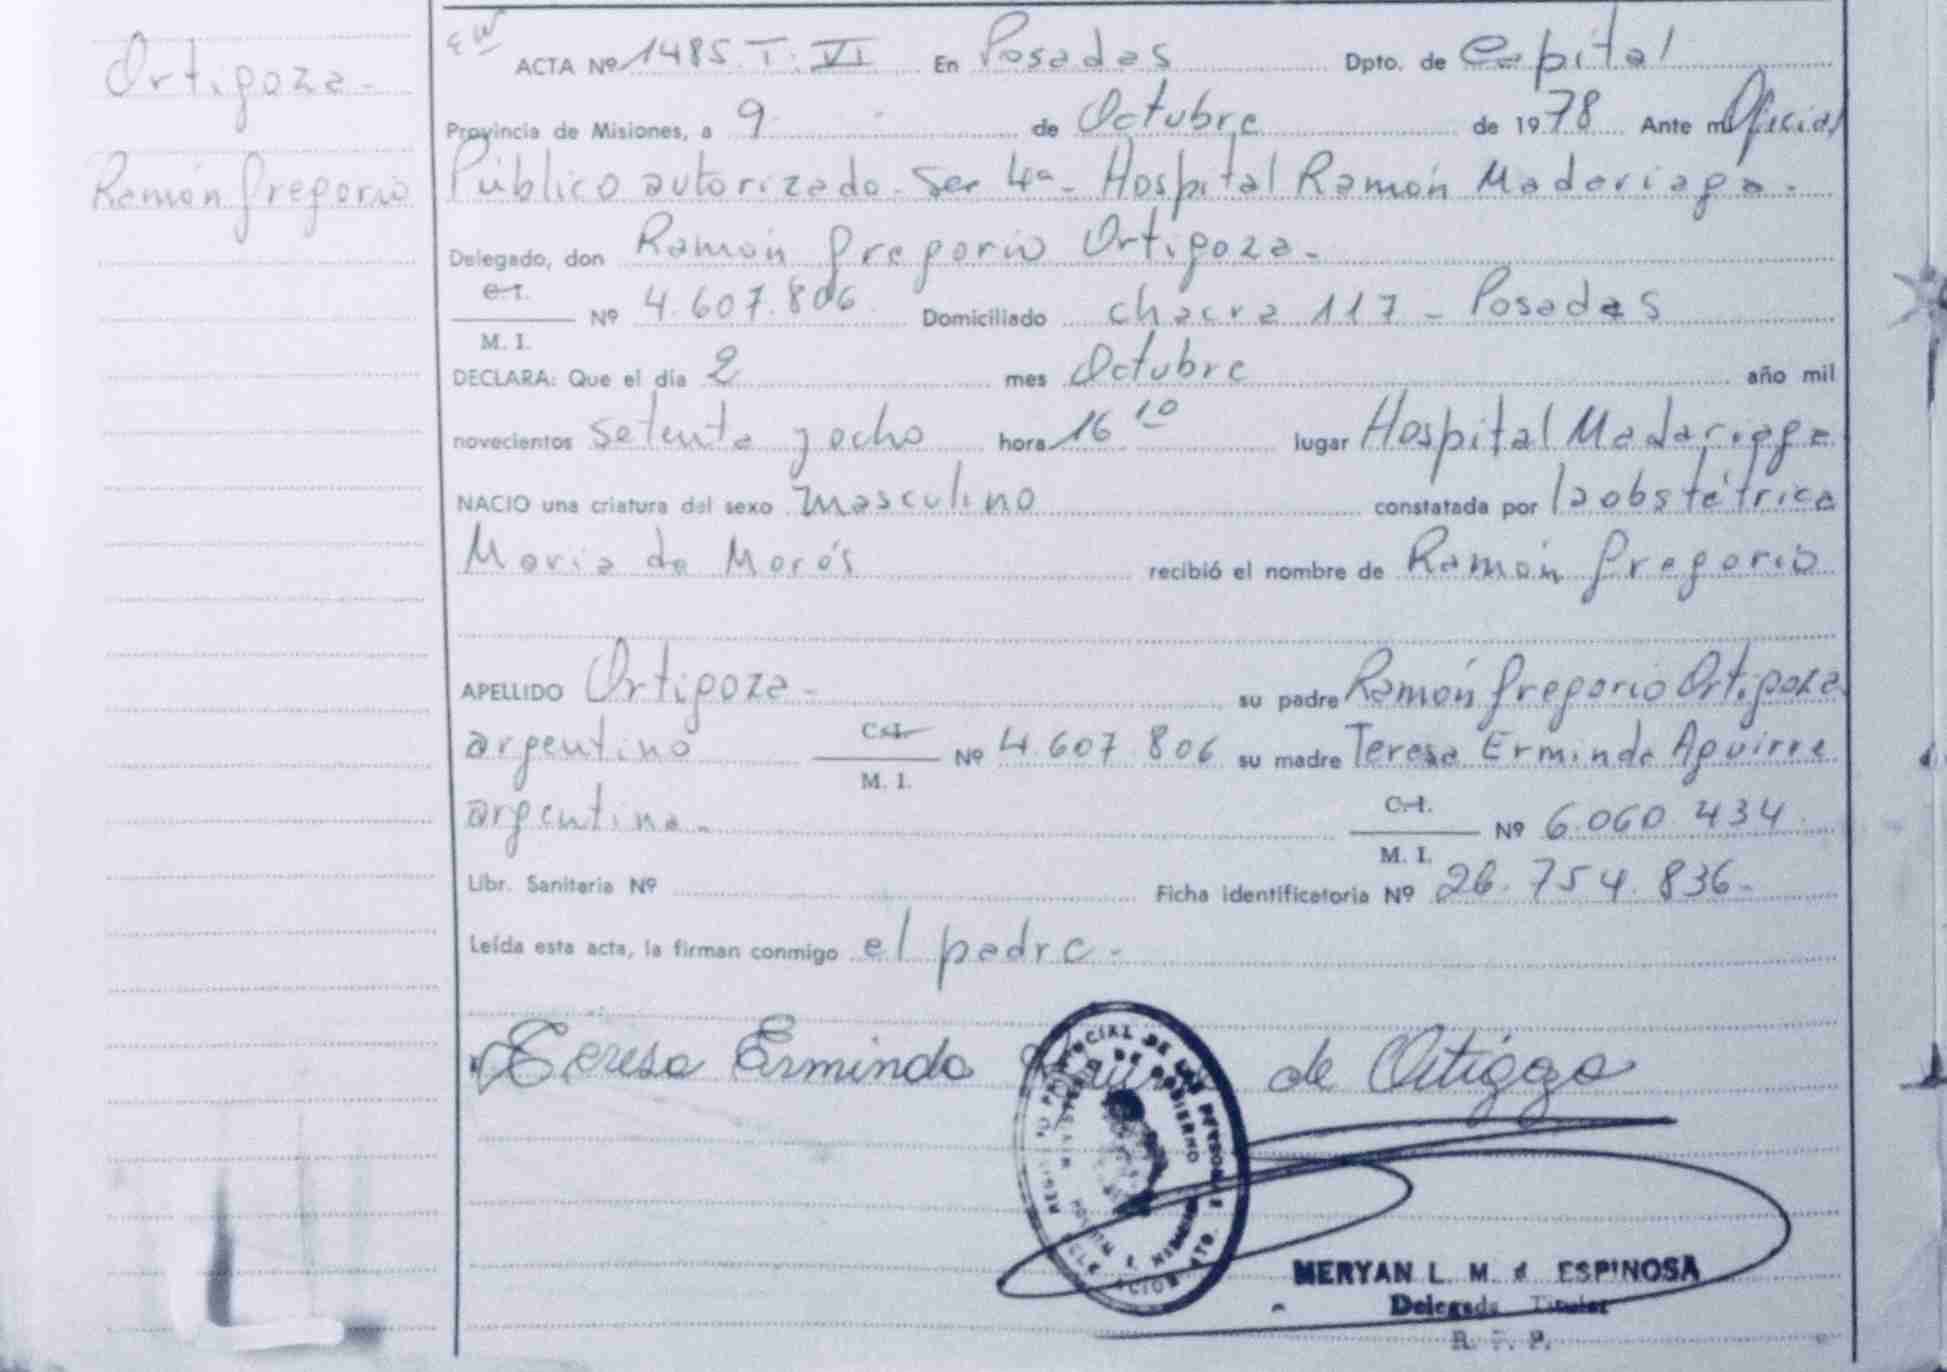 Ortigoza-
Ramón Gregorio
ACTA Nº 1485 T. VI En Posadas Dpto. de Capital
Provincia de Misiones, a 9 de Octubre de 1978 Ante mi Oficial
Público autorizado Sec 4ª- Hospital Ramón Madariaga-
Delegado, don Ramón Gregorio Ortigoza-
C.I.
Nº 4.607.806 Domiciliado chacra 117 - Posadas
M. I.
DECLARA: Que el día 2 mes Octubre año mil
novecientos setenta y ocho hora 16 10 lugar Hospital Madariaga
NACIO una criatura del sexo masculino constatada por la obstétrica
María de Morós recibió el nombre de Ramón Gregorio
APELLIDO Ortigoza- su padre Ramón Gregorio Ortigoza
argentino C.I. Nº 4.607.806 su madre Teresa Erminda Aguirre
M. I.
argentina- C.I. Nº 6.060.434
M. I.
Libr. Sanitaria Nº Ficha identificatoria Nº 26.754.836-
Leída esta acta, la firman conmigo el padre-
Teresa Erminda de Ortigoza
MERYAN L. M. d ESPINOSA
Delegada Titular
R. P. P.